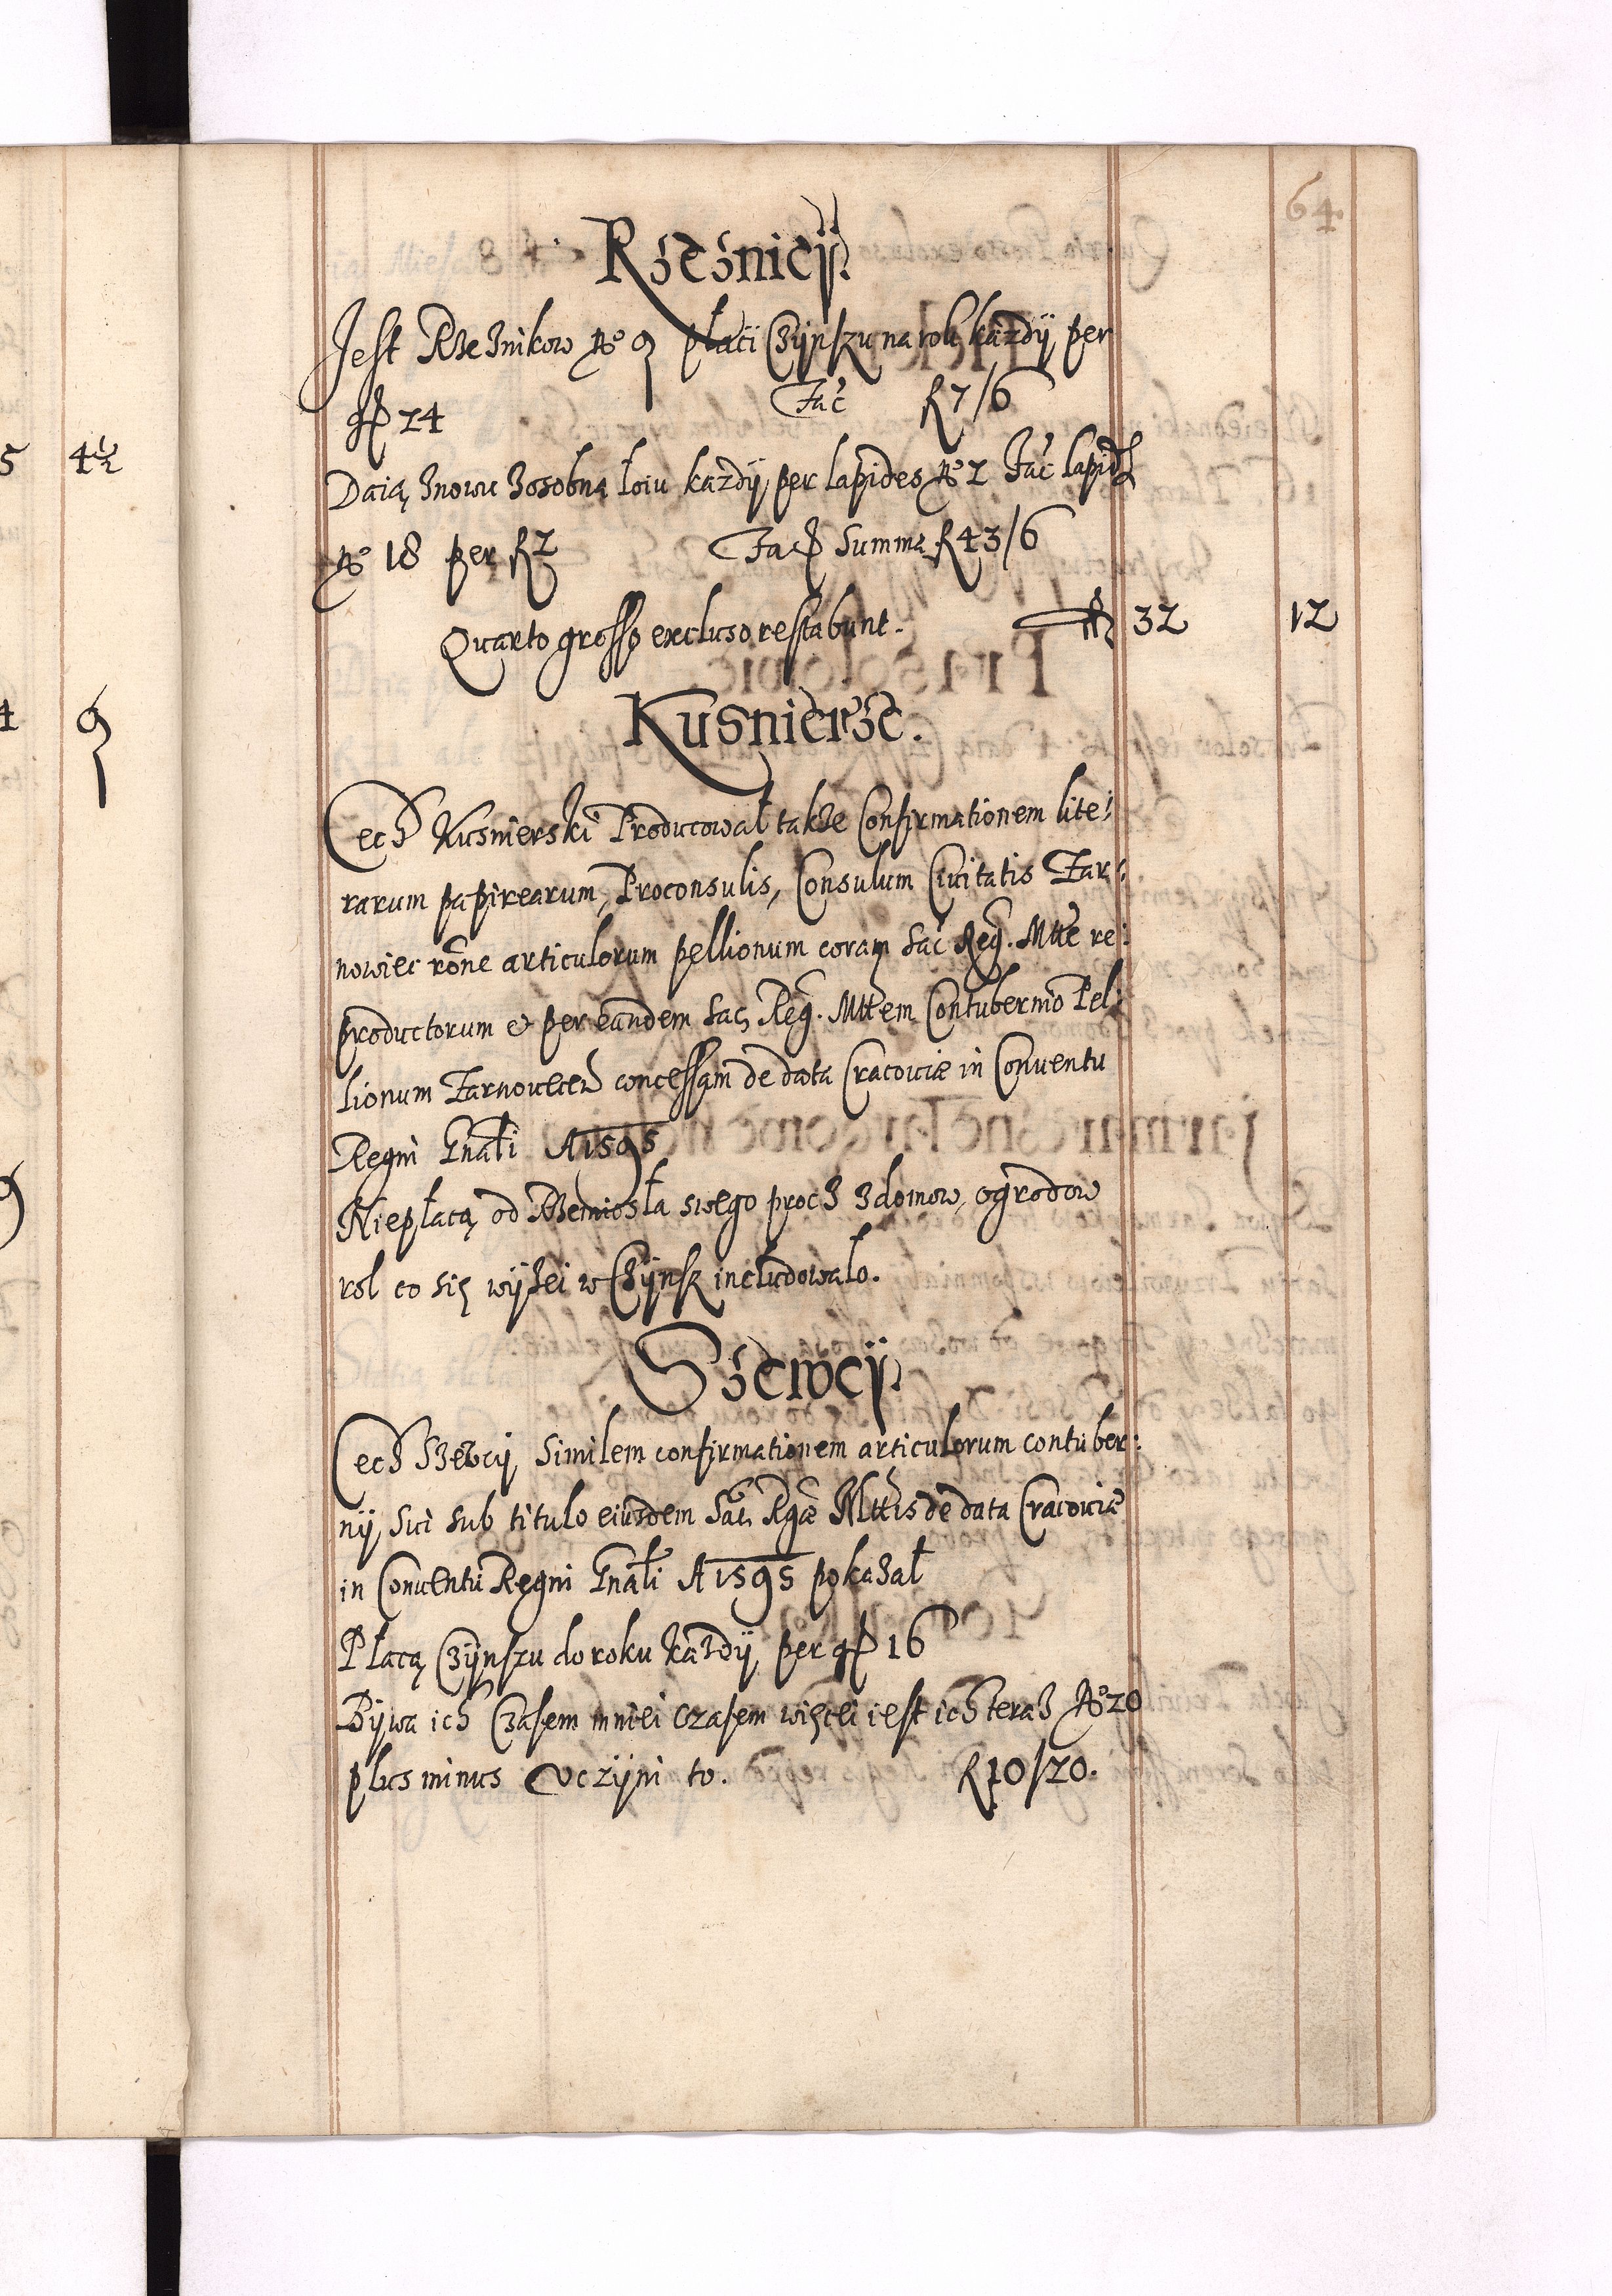 64.
Rzeznicÿ.
Jest Rzeznikow No 9 płaci Czÿnszu na rok kazdÿ per
gr 24 Fac f 7/6
Daią znowu zosobna łoiu kazdÿ per lapides No 2 Fac lapid
No 18 per f 2 Facit Summa f 43/6
Quarto grosso excluso restabunt. f 32 12
Kusnierze.
Cech Kusnierski Producował takze Confirmationem lite:
rarum papirearum, Proconsulis, Consulum Ciuitatis Tar:
nowiec rone articulorum pellionum coram Sac Reg. Mtte re:
productorum et per eandem Sac. Reg. Mttem Contubernio Pel:
lionum Tarnouecen concessam de data Cracouiæ in Conuentu
Regni Gnali A 1595
Niepłacą od Rzemiosła swego procz zdomow, ogrodow
rol co się wÿzei w Czÿnsz includowalo.
Szewcÿ.
Cech Szewcÿ Similem confirmationem articulorum contuber:
nÿ sui sub titulo eiusdem Sac. Rgæ Mttis de data Cracouiæ
in Conuentu Regni Gnali A 1595 pokazał
Płacą Czÿnszu do roku kazdÿ per gr 16
Bÿwa ich Czasem mniei czasem więcei iest ich teraz No 20
plus minus vczÿni to. f 10/20.
5 4½
4 9